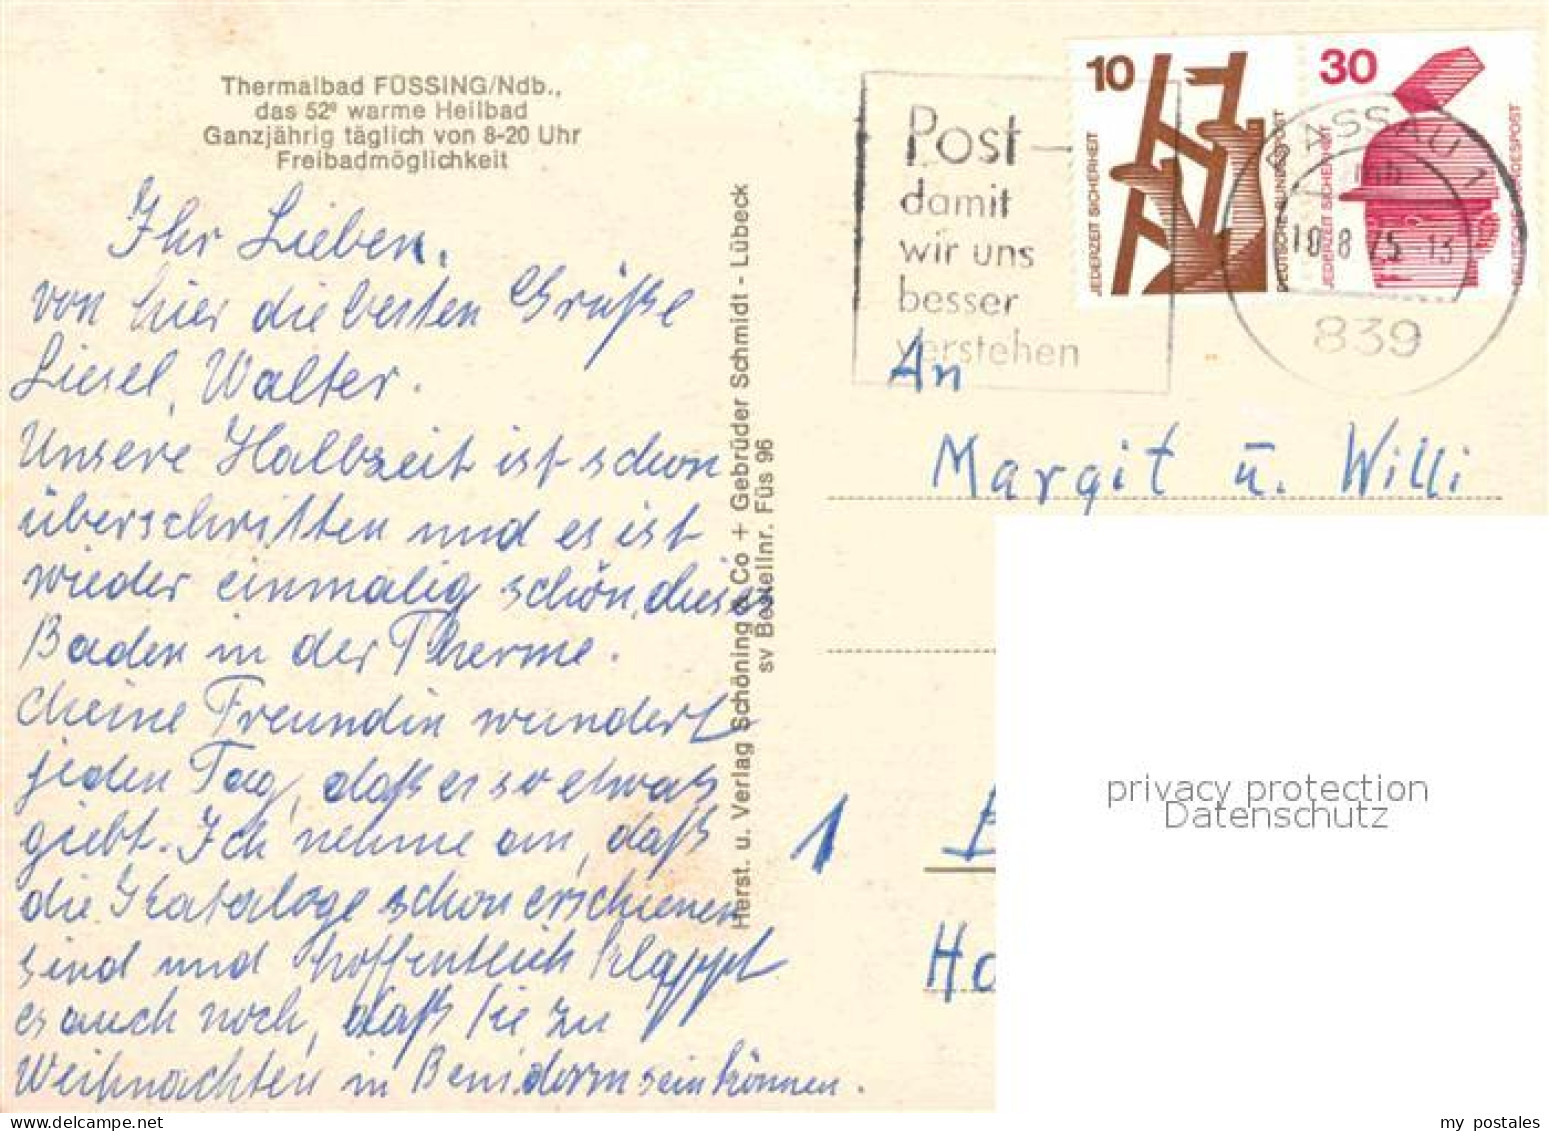 Thermalbad FÜSSING/Ndb.,
das 52° warme Heilbad
Ganzjährig täglich von 8-20 Uhr
Freibadmöglichkeit
Ihr Lieben,
von hier die besten Grüße
Liesel, Walter.
Unsere Halbzeit ist schon
überschritten und es ist
wieder einmalig schön, dieses
Baden in der Therme.
Meine Freundin wundert
jeden Tag, daß es so etwas
giebt. Ich nehme an, daß
die Kataloge schon erschienen
sind und hoffentlich klappt
es auch noch, daß Sie zu
Weihnachten in Benidorm sein können.
Herst. u. Verlag Schöning & Co + Gebrüder Schmidt - Lübeck
sv Bestellnr. Füs 96
Post -
damit
wir uns
besser
verstehen
10
JEDERZEIT SICHERHEIT
DEUTSCHE BUNDESPOST
30
JEDERZEIT SICHERHEIT
DEUTSCHE BUNDESPOST
PASSAU 1
mb
10.8.75-13
839
An
Margit u. Willi
1
Ha
privacy protection
Datenschutz
my postales